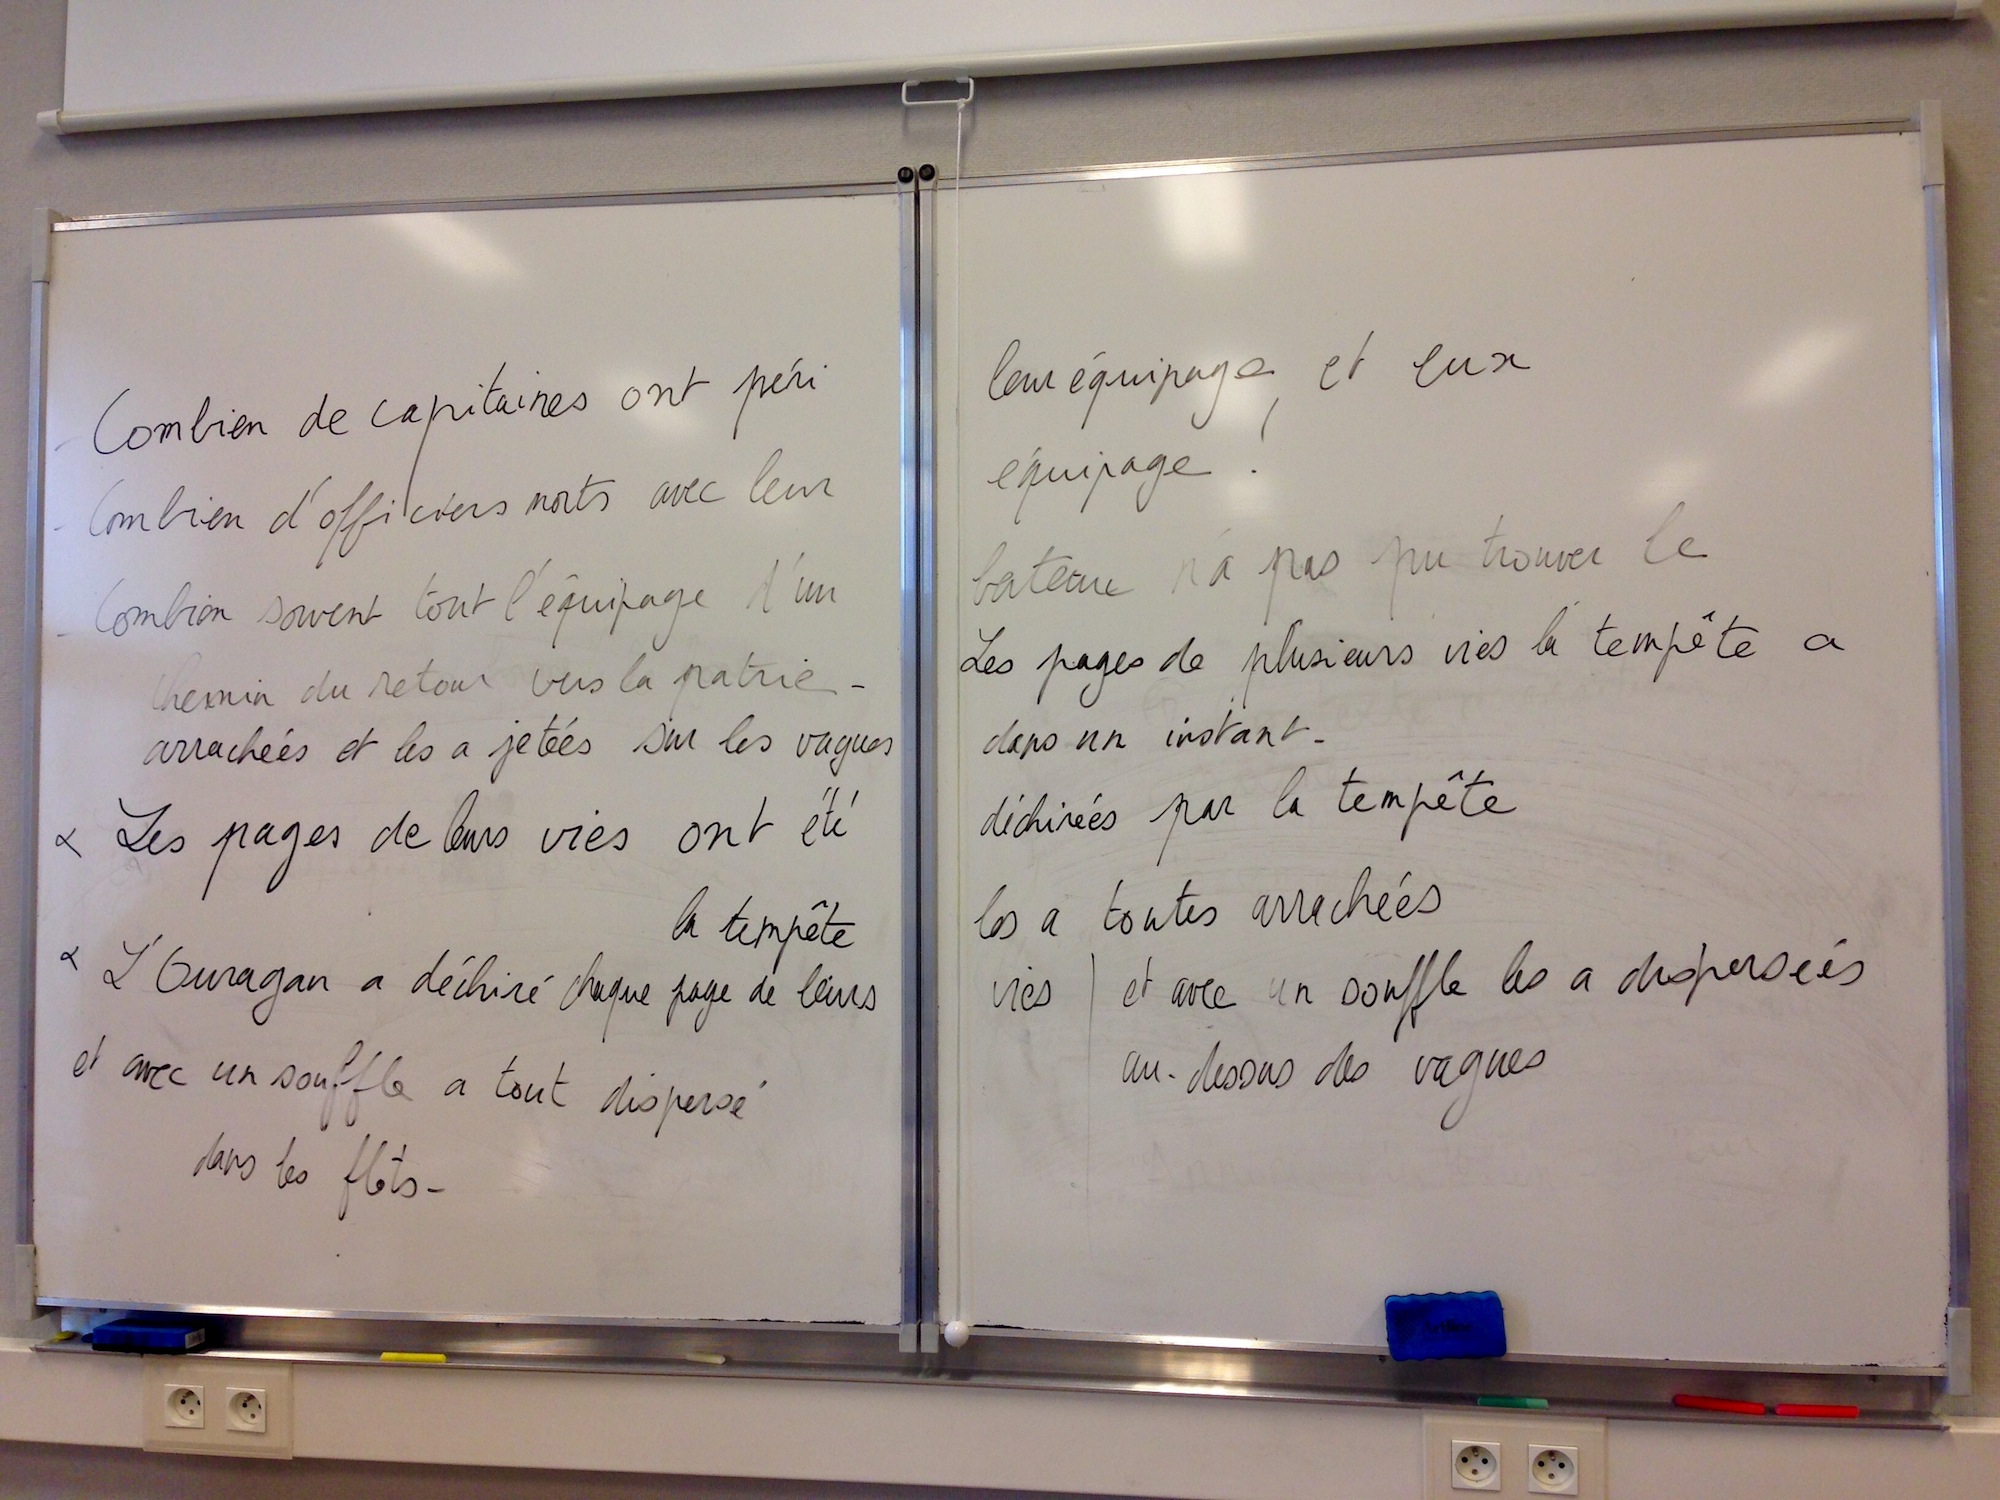 - Combien de capitaines ont péri
- Combien d'officiers morts avec leur
- Combien souvent tout l'équipage d'un
chemin du retour vers la patrie -
arrachées et les a jetées sur les vagues
α Les pages de leurs vies ont été
la tempête
α L'Ouragan a déchiré chaque page de leurs
et avec un souffle a tout dispersé
dans les flôts -
leur équipage, et eux
équipage !
bateau n'a pas pu trouver le
Les pages de plusieurs vies la tempête a
dans un instant -
déchirées par la tempête
les a toutes arrachées
vies | et avec un souffle les a dispersées
au-dessus des vagues